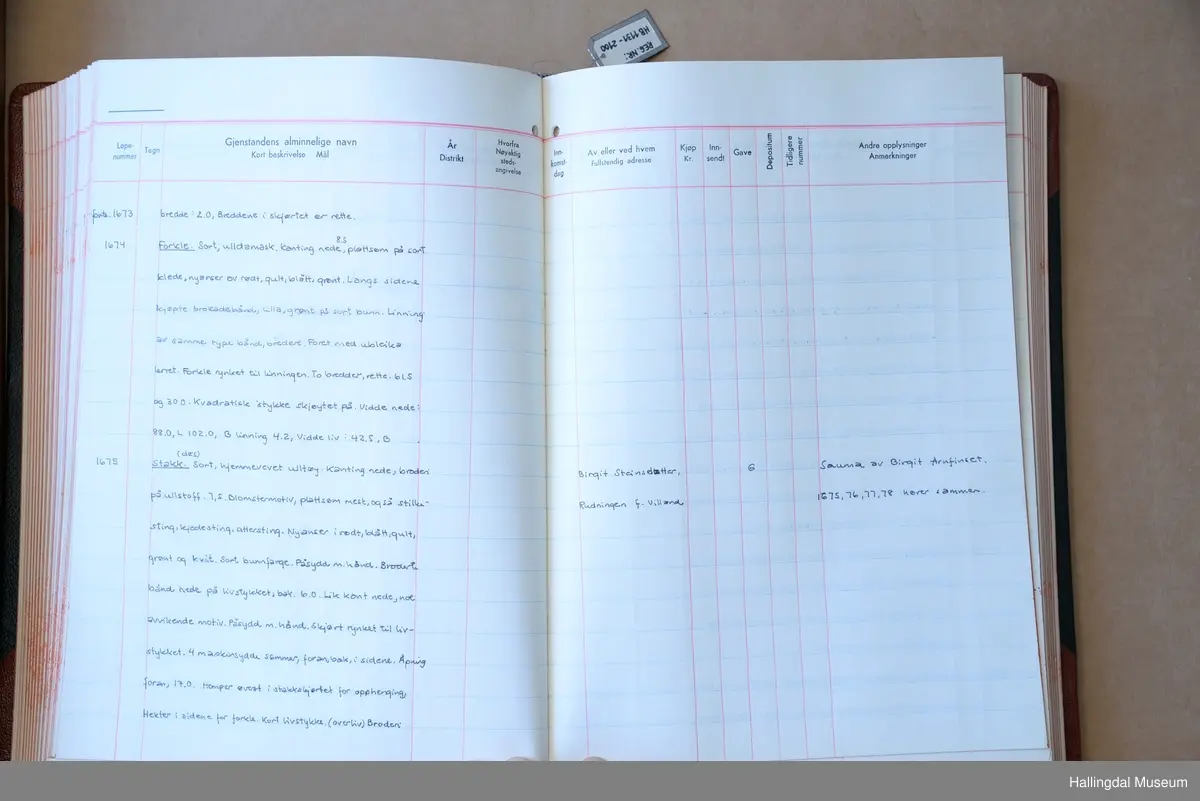 REG.NR:
HB 1131 - 2100
Løpe-
nummer
Tegn
Gjenstandens alminnelige navn
Kort beskrivelse Mål
År
Distrikt
Hvorfra
Nøyaktig
steds-
angivelse
Inn-
komst-
dag
Av eller ved hvem
Fullstendig adresse
Kjøp
Kr.
Inn-
sendt
Gave
Depositum
Tidligere
nummer
Andre opplysninger
Anmerkninger
forts. 1673 bredde: 2.0, Breddene i skjørtet er rette.
8.5
1674 Forkle. Sort, ulldamask. Kanting nede, plattsøm på sort
klede, nyanser av rødt, gult, blått, grønt. Langs sidene
kjøpte brokadebånd, lilla, grønt på sort bunn. Linning
av samme type bånd, bredere. Foret med ubleika
lerret. Forkle rynket til linningen. To bredder, rette. 61.5
og 30.0. Kvadratisk stykke skjøytet på. Vidde nede:
88.0, L 102.0, B linning 4.2, Vidde liv: 42.5, B
(des)
1675 Stakk. Sort, hjemmevevet ulltøy. Kanting nede, broderi
på ullstoff. 7,5. Blomstermotiv, plattsøm mest, også stilke-
sting, kjedesting, attersting. Nyanser i rødt, blått, gult,
grønt og kvit. Sort bunnfarge. Påsydd m. hånd. Brodert
bånd nede på livstykket, bak. 6.0. Lik kant nede, noe
avvikende motiv. Påsydd m. hånd. Skjørt rynket til liv-
stykket. 4 maskinsydde sømmer, foran, bak, i sidene. Åpning
foran, 17.0. Hemper øverst i stakkskjørtet for opphenging,
Hekter i sidene for forkle. Kort livstykke. (overliv) Broderi
Birgit Steinsdatter, G Sauma av Birgit Arnfinset.
Rudningen f. Villand 1675, 76, 77, 78 hører sammen.
Hallingdal Museum